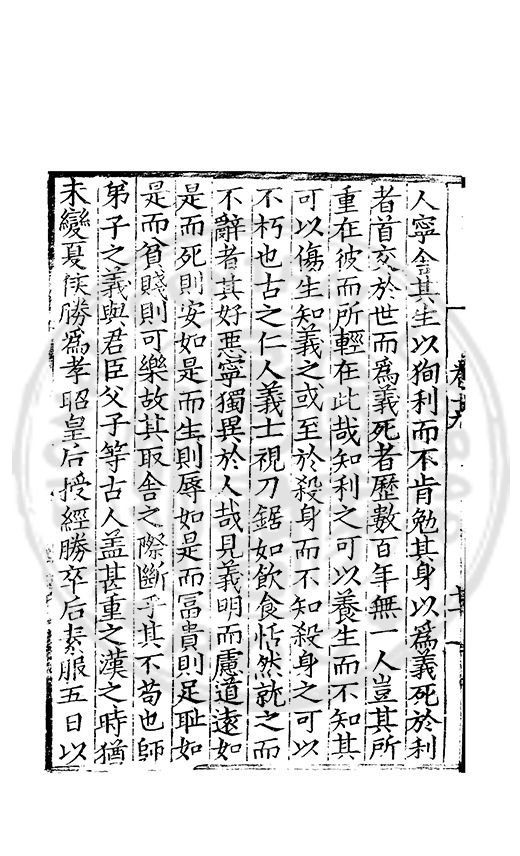 人寧舎其生以狥利而不肯勉其身以為義死於利
者首交於世而為義死者歷數百年無一人豈其所
重在彼而所輕在此哉知利之可以養生而不知其
可以傷生知義之或至於殺身而不知殺身之可以
不朽也古之仁人義士視刀鋸如飲食恬然就之而
不辭者其好惡寧獨異於人哉見義明而慮道遠如
是而死則安如是而生則辱如是而冨貴則足耻如
是而貧賤則可樂故其取舎之際斷乎其不苟也師
弟子之義與君臣父子等古人盖甚重之漢之時猶
未變夏侯勝為孝昭皇后授經勝卒后素服五日以